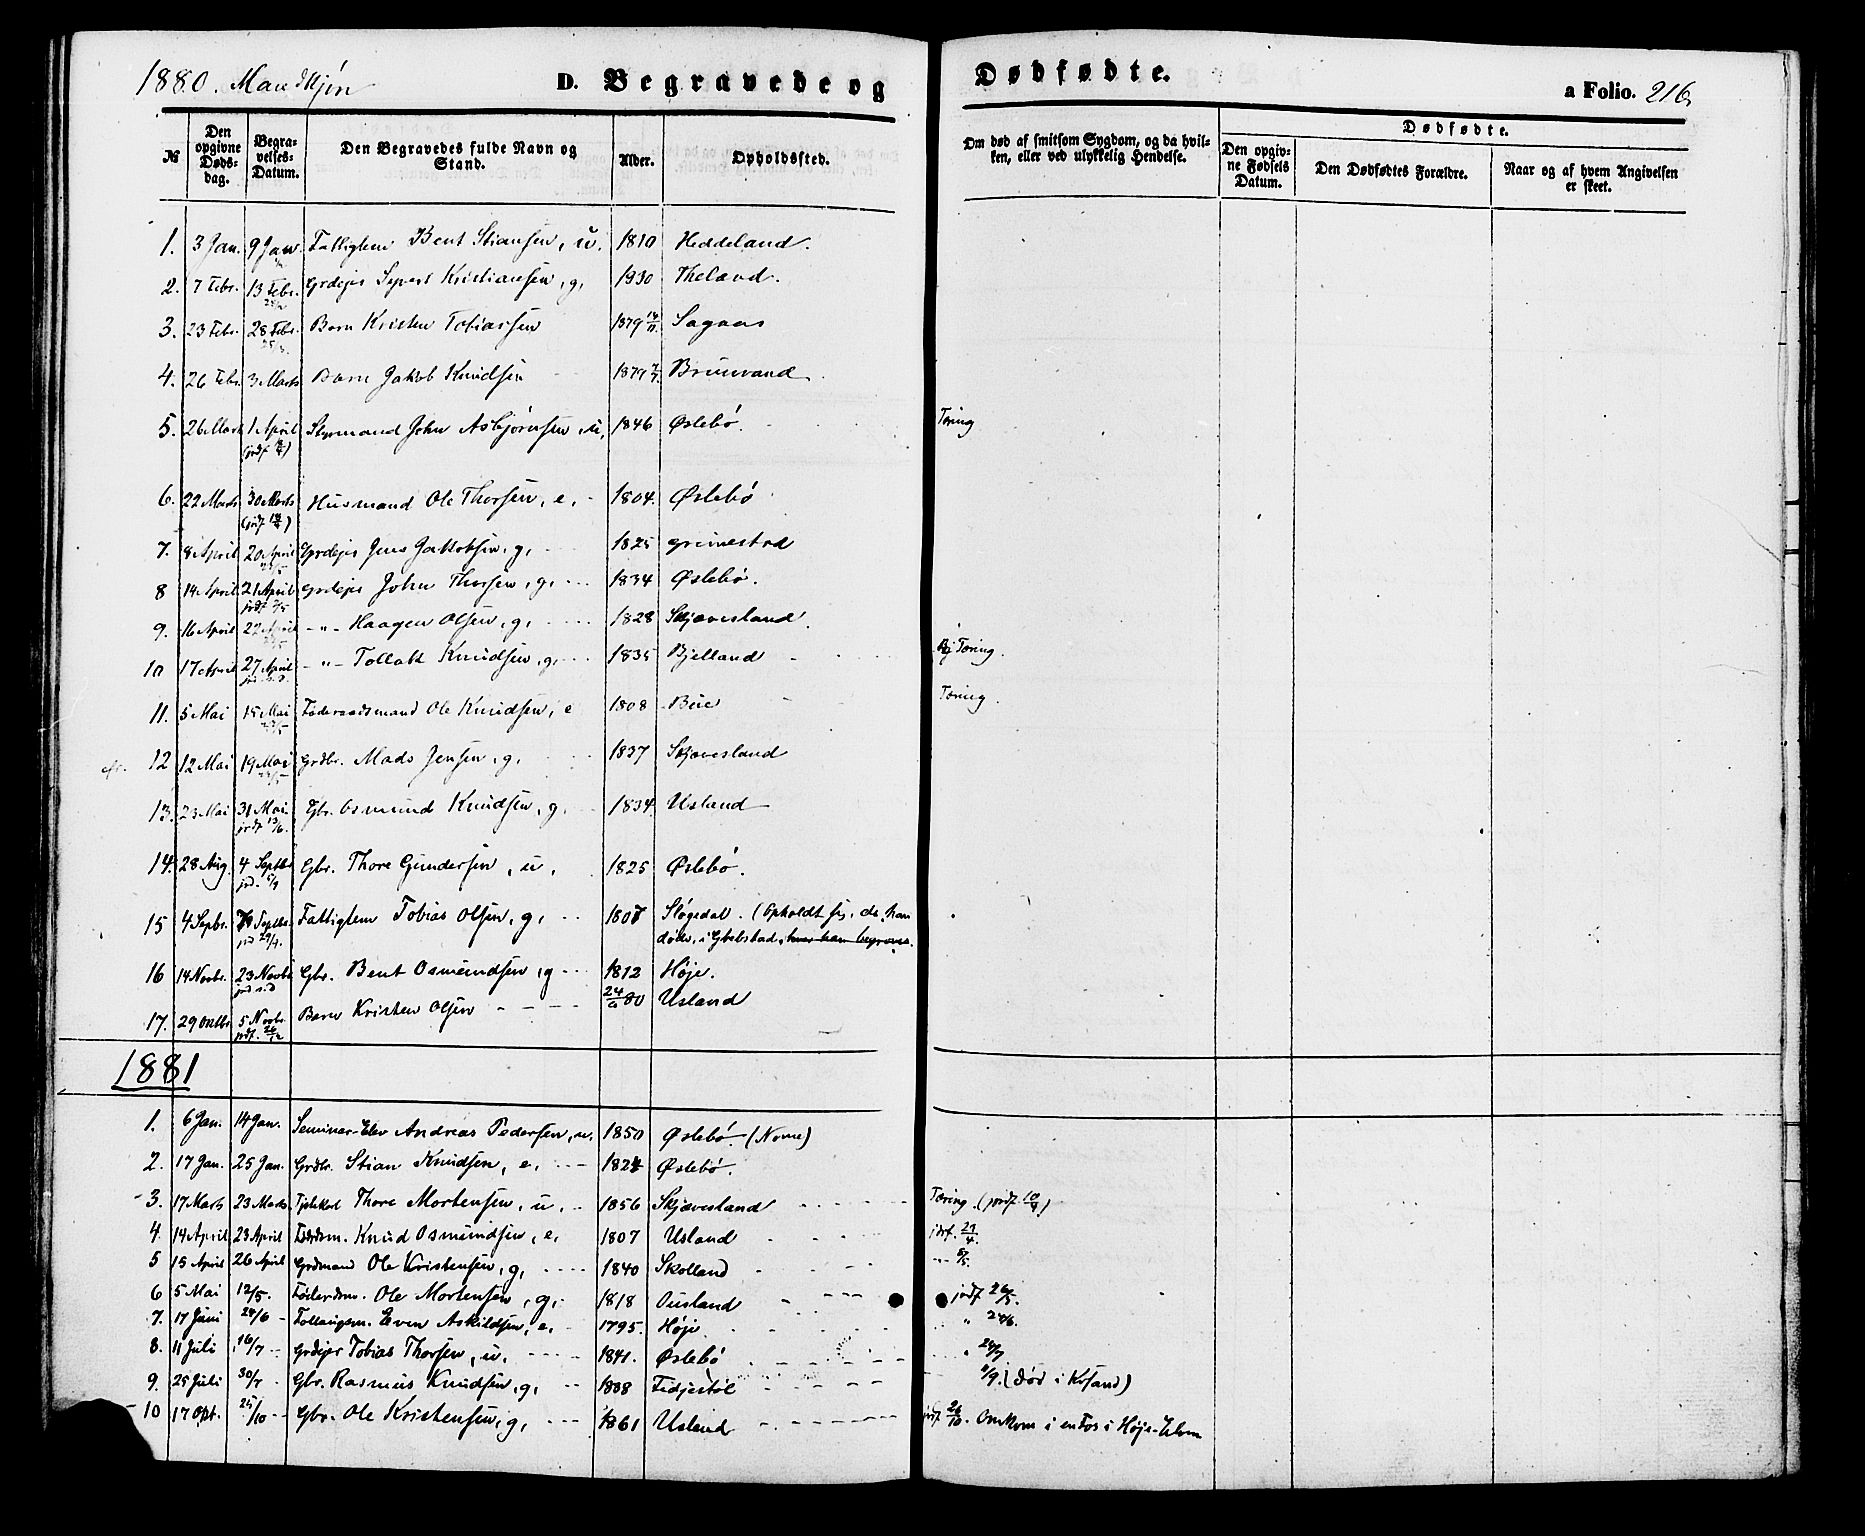 1880. Mandkjøn
D. Begravede og Dødfødte.
a Folio. 216
№
Den opgivne Døds-dag.
Begra-velses-Datum.
Den Begravedes fulde Navn og Stand.
Alder.
Opholdssted.
Om død af smitsom Sygdom, og da hvil-ken, eller ved ulykkelig Hendelse.
Dødfødte.
Den opgiv-ne Fødsels Datum.
Den Dødfødtes Forældre.
Naar og af hvem Angivelsen er skeet.
1. 3 Jan. 9 Jan. Fattiglem Bent Stiansen, u. 1810 Heddeland.
2. 7 Febr. 13 Febr. Grdejer Syvert Kristiansen, g, 1930 Theland.
3. 23 Febr. 28 Febr. Barn Kristen Tobiassen 1879 Sagaas
4. 26 Febr. 3 Marts Barn Jakob Knudsen 1879 Bruuvand
5. 26 Marts 1 April Styrmand John Asbjørnsen, u, 1846 Øslebø. Tæring
6. 22 Marts 30 Marts Husmand Ole Thorsen, e, 1804. Øslebø
7. 8 April 20 April Grdejer Jens Jakobsen, g, 1825 Grimestad
8 14 April 21 April Grdejer John Thorsen, g, 1834 Øslebø.
jrdf 2/5
9. 16 April 22 April -"- Haagen Olsen, g, 1828 Skjævesland
10 17 April 27 April -"- Tollak Knudsen, g, 1835 Bjelland Tæring.
11. 5 Mai 15 Mai Føderaadsmand Ole Knudsen, e 1808 Bue Tæring.
12 12 Mai 19 Mai Grdbr. Mads Jensen, g, 1837 Skjævesland
13. 23 Mai 31 Mai Gbr. Osmund Knudsen, g, 1834 Usland
jrdf 13/6.
14. 28 Aug. 4 Septbr Gbr. Thore Gundersen, u, 1825 Øslebø.
jrd. 5/9
15 4 Sepbr. Septbr. Fattiglem Tobias Olsen, g, 1807 Sløgedal. (Opholdt sig, da han
døde, i Ghbstad, hvor han begroves.
16 14 Novbr. 23 Novbr Gbr. Bent Osmundsen, g 1812 Høje.
17. 29 Oktbr 5 Novbr. Barn Kristen Olsen 24/9 80 Usland
1881
1. 6 Jan. 14 Jan. Seminar-Elev Andreas Pedersen, u. 1850 Øslebø (Nome)
2. 17 Jan. 25 Jan. Grdbr. Stian Knudsen, e, 1824 Øslebø.
3. 17 Marts 23 Marts Thore Mortensen, u, 1856 Skjævesland Tæring (jordf. 10/4)
4. 14 April 23 April Fødrdsm. Knud Osmundsen, e, 1807 Usland jrdf. 27/4.
5 15 April 26 April Grdmand Ole Kristensen, g, 1840 Skolland
6 5 Mai 12/5. Føderdsm. Ole Mortensen, g, 1818 Ousland jrdf 26/5.
7. 17 Juni 24/6 Follaugsm. Even Askildsen, e, 1795. Høje. " 24/6.
8. 11 Juli 16/7 Grdejer Tobias Thorsen, u. 1841. Øslebø "
9. 25 Juli 30/7 Gbr. Rasmus Knudsen, g, 1838 Fidjestøl (død i Krsand)
10 17 Opt. 25/10 Gbr. Ole Kristensen, g, 1861 Usland jrdf 26/10. Omkom i en Fos i Høje-Elven